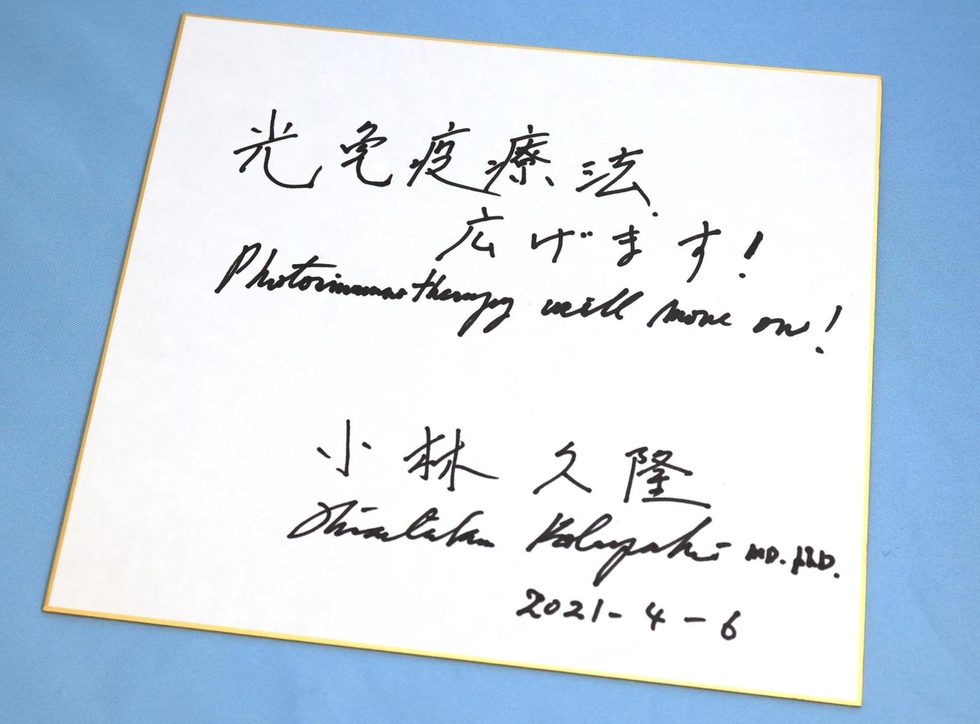 光免疫療法.
広げます!
Photoimmunotherapy will move on!
小林 久隆
Hisataka Kobayashi MD. PhD.
2021-4-6